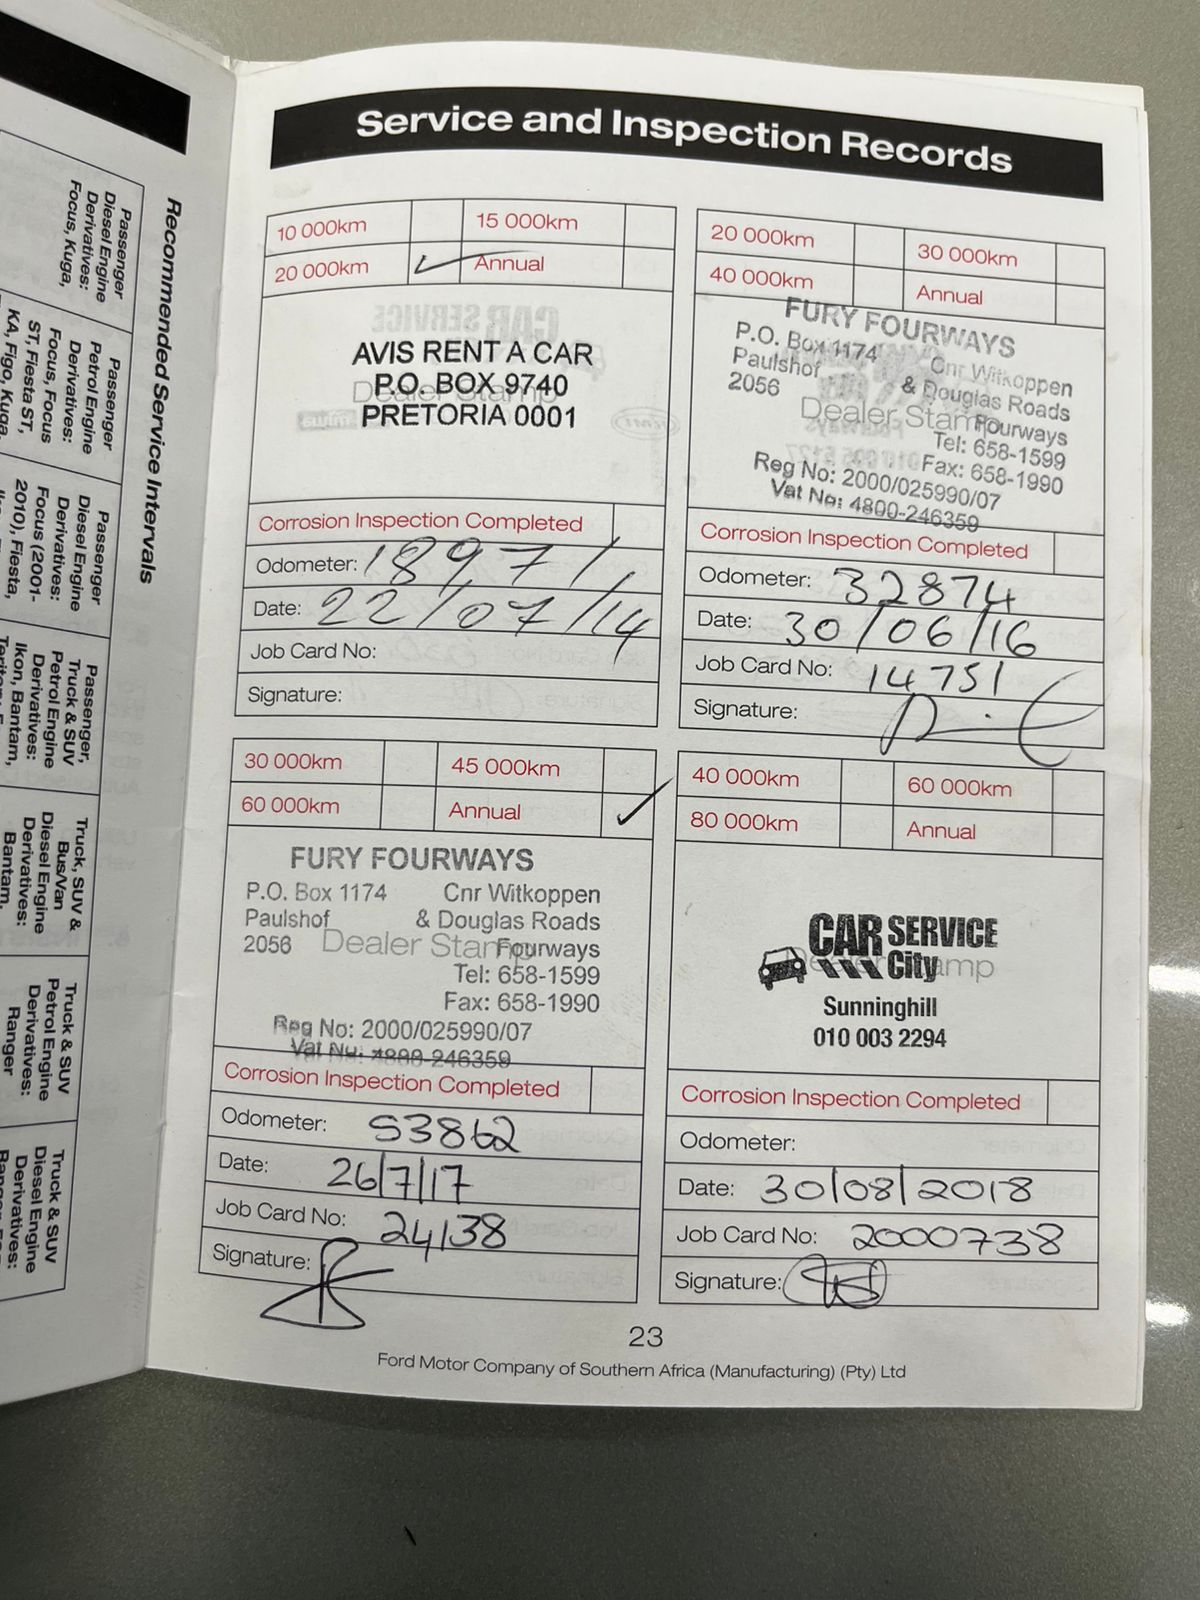 Recommended Service Intervals
Passenger
Diesel Engine
Derivatives:
Focus, Kuga,
Passenger
Petrol Engine
Derivatives:
Focus, Focus
ST, Fiesta ST,
KA, Figo, Kuga,
Passenger
Diesel Engine
Derivatives:
Focus (2001-
2010), Fiesta,
Passenger,
Truck & SUV
Petrol Engine
Derivatives:
Ikon, Bantam,
Truck, SUV &
Bus/Van
Diesel Engine
Derivatives:
Bantam,
Truck & SUV
Petrol Engine
Derivatives:
Ranger
Truck & SUV
Diesel Engine
Derivatives:
Service and Inspection Records
10 000km 15 000km
20 000km ✓ Annual
AVIS RENT A CAR
P.O. BOX 9740
Dealer Stamp
PRETORIA 0001
Corrosion Inspection Completed
Odometer: 18971
Date: 22/07/14
Job Card No:
Signature:
20 000km 30 000km
40 000km Annual
FURY FOURWAYS
P.O. Box 1174 Cnr Witkoppen
Paulshof & Douglas Roads
2056 Dealer Stamp Fourways
Tel: 658-1599
Fax: 658-1990
Reg No: 2000/025990/07
Vat No: 4800-246359
Corrosion Inspection Completed
Odometer: 32874
Date: 30/06/16
Job Card No: 14751
Signature:
30 000km 45 000km
60 000km Annual ✓
FURY FOURWAYS
P.O. Box 1174 Cnr Witkoppen
Paulshof & Douglas Roads
2056 Dealer Stamp Fourways
Tel: 658-1599
Fax: 658-1990
Reg No: 2000/025990/07
Vat No: 4800-246359
Corrosion Inspection Completed
Odometer: 53862
Date: 26/7/17
Job Card No: 24138
Signature:
40 000km 60 000km
80 000km Annual
CAR SERVICE
City
Dealer Stamp
Sunninghill
010 003 2294
Corrosion Inspection Completed
Odometer:
Date: 30/08/2018
Job Card No: 2000738
Signature:
23
Ford Motor Company of Southern Africa (Manufacturing) (Pty) Ltd